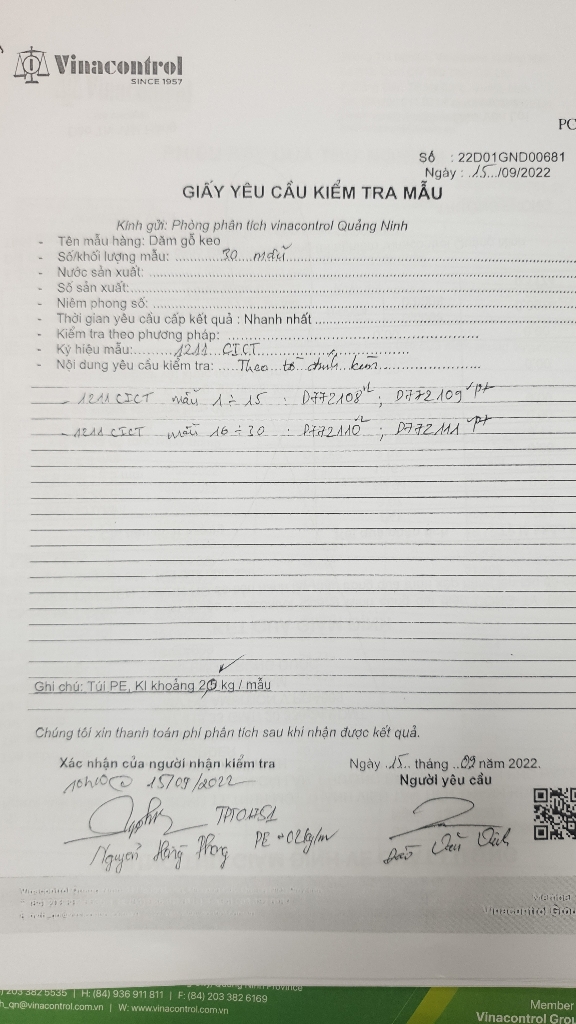 Vinacontrol
SINCE 1957
PC
Số : 22D01GND00681
Ngày : 15 /09/2022
GIẤY YÊU CẦU KIỂM TRA MẪU
Kính gửi: Phòng phân tích vinacontrol Quảng Ninh
- Tên mẫu hàng: Dăm gỗ keo
- Số/khối lượng mẫu: 30 mẫu
- Nước sản xuất:
- Số sản xuất:
- Niêm phong số:
- Thời gian yêu cầu cấp kết quả : Nhanh nhất
- Kiểm tra theo phương pháp:
- Ký hiệu mẫu: 1211 CICT
- Nội dung yêu cầu kiểm tra: Theo tờ đính kèm
- 1211 CICT mẫu 1÷15 : D772108 ; D772109
- 1211 CICT mẫu 16÷30 : D772110 ; D772111
Ghi chú: Túi PE, Kl khoảng kg / mẫu
Chúng tôi xin thanh toán phí phân tích sau khi nhận được kết quả.
Xác nhận của người nhận kiểm tra
Ngày 15 tháng 09 năm 2022.
Người yêu cầu
15/09/2022
PE
Nguyễn Hồng Phong
203 382 5535 | H: (84) 936 911 811 | F: (84) 203 382 6169
h_qn@vinacontrol.com.vn | W: www.vinacontrol.com.vn
Member
Vinacontrol Grou